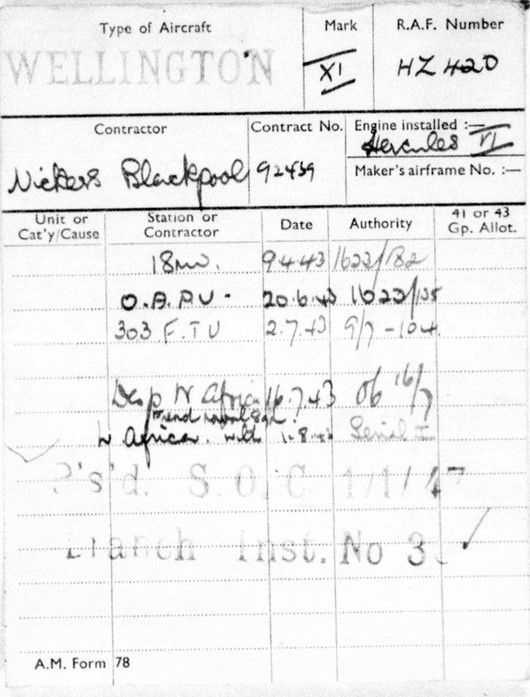 Type of Aircraft Mark R.A.F. Number
WELLINGTON XI HZ 420
Contractor Contract No. Engine installed :—
Hercules VI
Vickers Blackpool 92439 Maker's airframe No. :—
Unit or Cat'y/Cause Station or Contractor Date Authority 41 or 43 Gp. Allot.
18 MU. 9.4.43 1623/182
O.A.P.U - 20.6.43 1623/135
303 F.T.U 2.7.43 9/7 - 104
Desp N Africa 16.7.43 Ob 16/7
N Africa. 1.8.43 Serial
P's'd. S.O.C 1/1/47
Branch Inst. No 3
A.M. Form 78